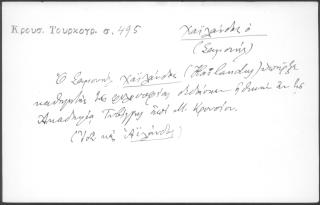 Κρουσ. Τουρκογρ. σ. 495
Χαϊλάνδος ὁ
(Σαμουὴλ)
Ὁ Σαμουὴλ Χαϊλάνδος (Hailandus) ὑπῆρξε
καθηγητὴς τῆς φιλοσοφίας ἠθικῆς ἐν τῇ
Ἀκαδημίᾳ Τυβίγγης ἐπὶ Μ. Κρουσίου.
(Ἴδε καὶ Ἀϊλάνδος)